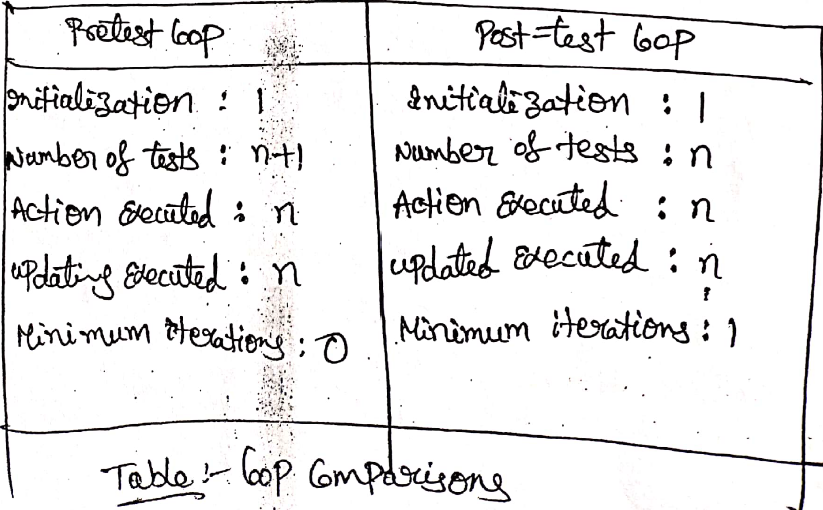 Pretest loop Post-test loop
Initialization : 1 Initialization : 1
Number of tests : n+1 Number of tests : n
Action Executed : n Action Executed : n
updating Executed : n updated Executed : n
Minimum iterations : 0 Minimum iterations : 1
Table :- loop Comparisons